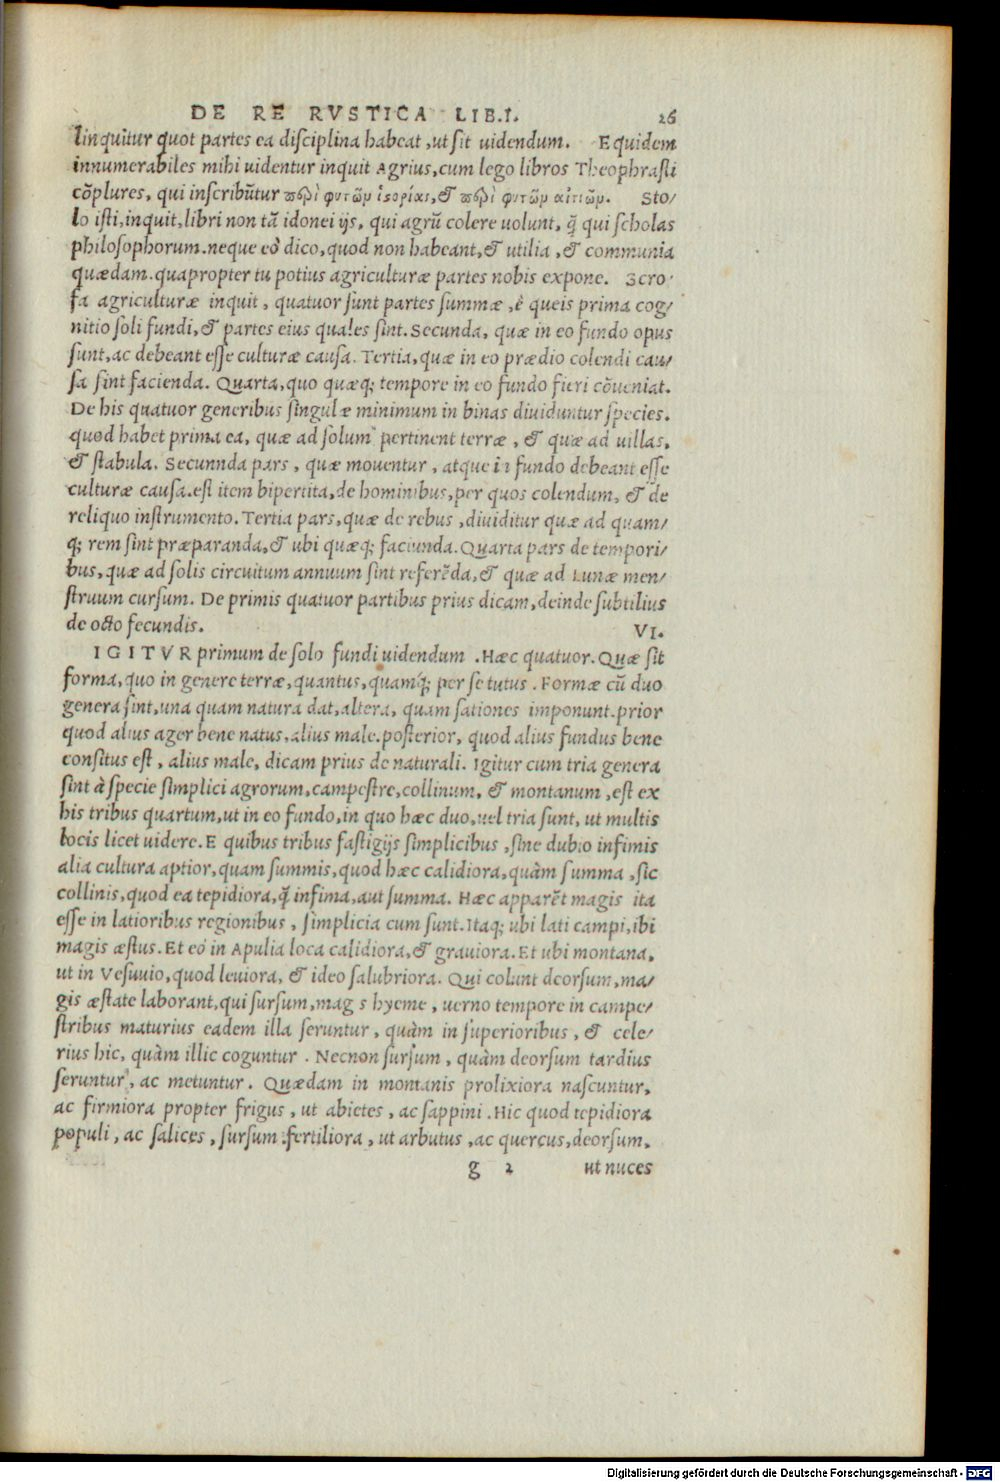 DE RE RVSTICA LIB.I. 26
linquitur quot partes ea disciplina habeat, ut sit uidendum. Equidem
innumerabiles mihi uidentur inquit Agrius, cum lego libros Theophrasti
cōplures, qui inscribūtur περὶ φυτῶν ἱστορίας, & περὶ φυτῶν αἰτιῶν. Sto/
lo isti, inquit, libri non tā idonei ijs, qui agrū colere uolunt, q̄ qui scholas
philosophorum. neque eò dico, quod non habeant, & utilia, & communia
quædam. quapropter tu potius agriculturæ partes nobis expone. Scro/
fa agriculturæ inquit, quatuor sunt partes summæ, è queis prima cog/
nitio soli fundi, & partes eius quales sint. Secunda, quæ in eo fundo opus
sunt, ac debeant esse culturæ causa. Tertia, quæ in eo prædio colendi cau/
sa sint facienda. Quarta, quo quæq; tempore in eo fundo fieri cōueniat.
De his quatuor generibus singulæ minimum in binas diuiduntur species.
quod habet prima ea, quæ ad solum pertinent terræ, & quæ ad uillas,
& stabula. Secunnda pars, quæ mouentur, atque in fundo debeant esse
culturæ causa. est item bipertita, de hominibus, per quos colendum, & de
reliquo instrumento. Tertia pars, quæ de rebus, diuiditur quæ ad quam/
q; rem sint præparanda, & ubi quæq; faciunda. Quarta pars de tempori/
bus, quæ ad solis circuitum annuum sint referēda, & quæ ad Lunæ men/
struum cursum. De primis quatuor partibus prius dicam, deinde subtilius
de octo secundis. VI.
IGITVR primum de solo fundi uidendum. Hæc quatuor. Quæ sit
forma, quo in genere terræ, quantus, quamq; per se tutus. Formæ cū duo
genera sint, una quam natura dat, altera, quam sationes imponunt. prior
quod alius ager bene natus, alius male. posterior, quod alius fundus bene
consitus est, alius male, dicam prius de naturali. Igitur cum tria genera
sint à specie simplici agrorum, campestre, collinum, & montanum, est ex
his tribus quartum, ut in eo fundo, in quo hæc duo, uel tria sunt, ut multis
locis licet uidere. E quibus tribus fastigijs simplicibus, sine dubio infimis
alia cultura aptior, quam summis, quod hæc calidiora, quàm summa, sic
collinis, quod ea tepidiora, q̄ infima, aut summa. Hæc apparēt magis ita
esse in latioribus regionibus, simplicia cum sunt. Itaq; ubi lati campi, ibi
magis æstus. Et eò in Apulia loca calidiora, & grauiora. Et ubi montana,
ut in Vesuuio, quod leuiora, & ideo salubriora. Qui colunt deorsum, ma/
gis æstate laborant, qui sursum, mag s hyeme, uerno tempore in campe/
stribus maturius eadem illa seruntur, quàm in superioribus, & cele/
rius hic, quàm illic coguntur. Necnon sursum, quàm deorsum tardius
seruntur, ac metuntur. Quædam in montanis prolixiora nascuntur,
ac firmiora propter frigus, ut abietes, ac sappini. Hic quod tepidiora
populi, ac salices, sursum fertiliora, ut arbutus, ac quercus, deorsum,
g 2 ut nuces
Digitalisierung gefördert durch die Deutsche Forschungsgemeinschaft - DFG